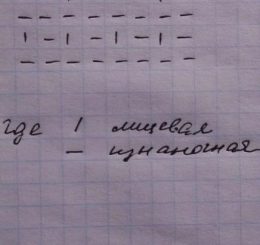 — — — — — — — —
| — | — | — | —
— — — — — — — —
где | лицевая
— изнаночная